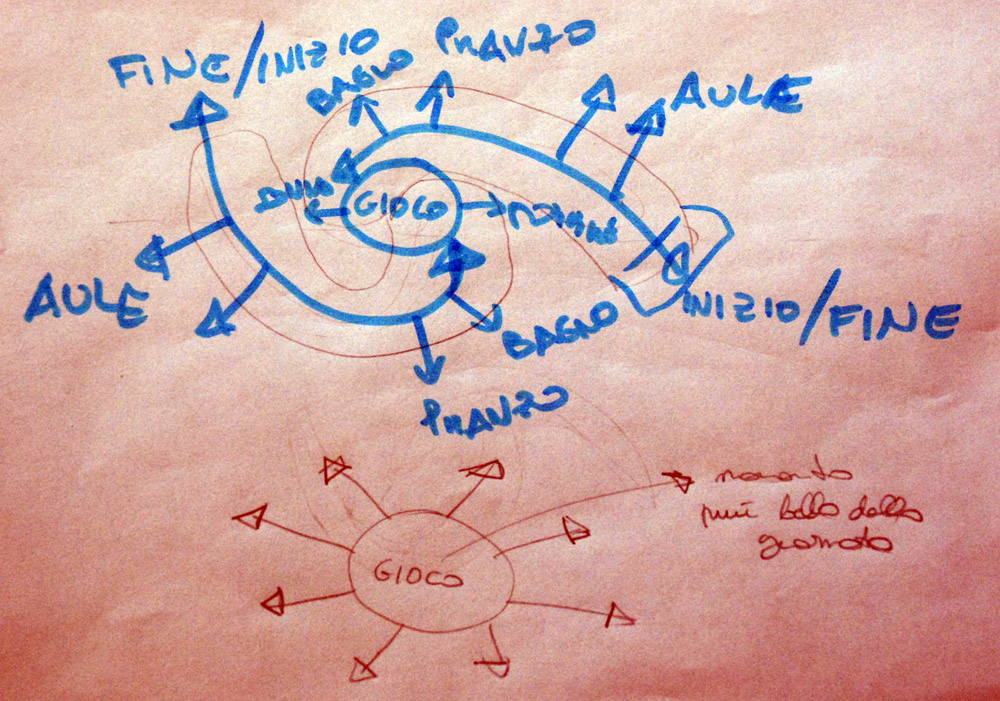 FINE/INIZIO
BAGNO
PRANZO
AULE
GIOCO
AULE
INIZIO/FINE
BAGNO
PRANZO
momento
più bello della
giornata
GIOCO